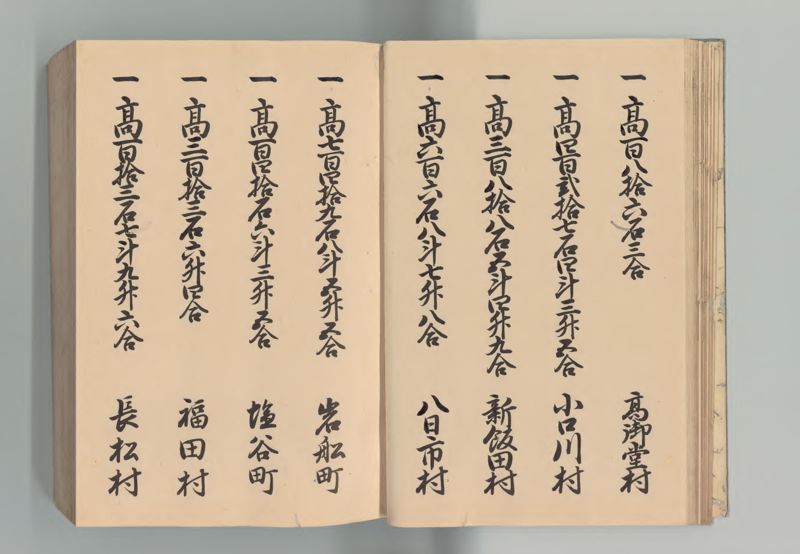 一 高百八拾六石三合 高御堂村
一 高四百弐拾七石四斗三升五合 小口川村
一 高三百八拾八石五斗四升九合 新飯田村
一 高六百六石八斗七升八合 八日市村
一 高七百四拾九石八斗五升五合 岩船町
一 高百四拾石六斗三升五合 塩谷町
一 高三百拾三石六升四合 福田村
一 高百拾三石七斗九升六合 長松村